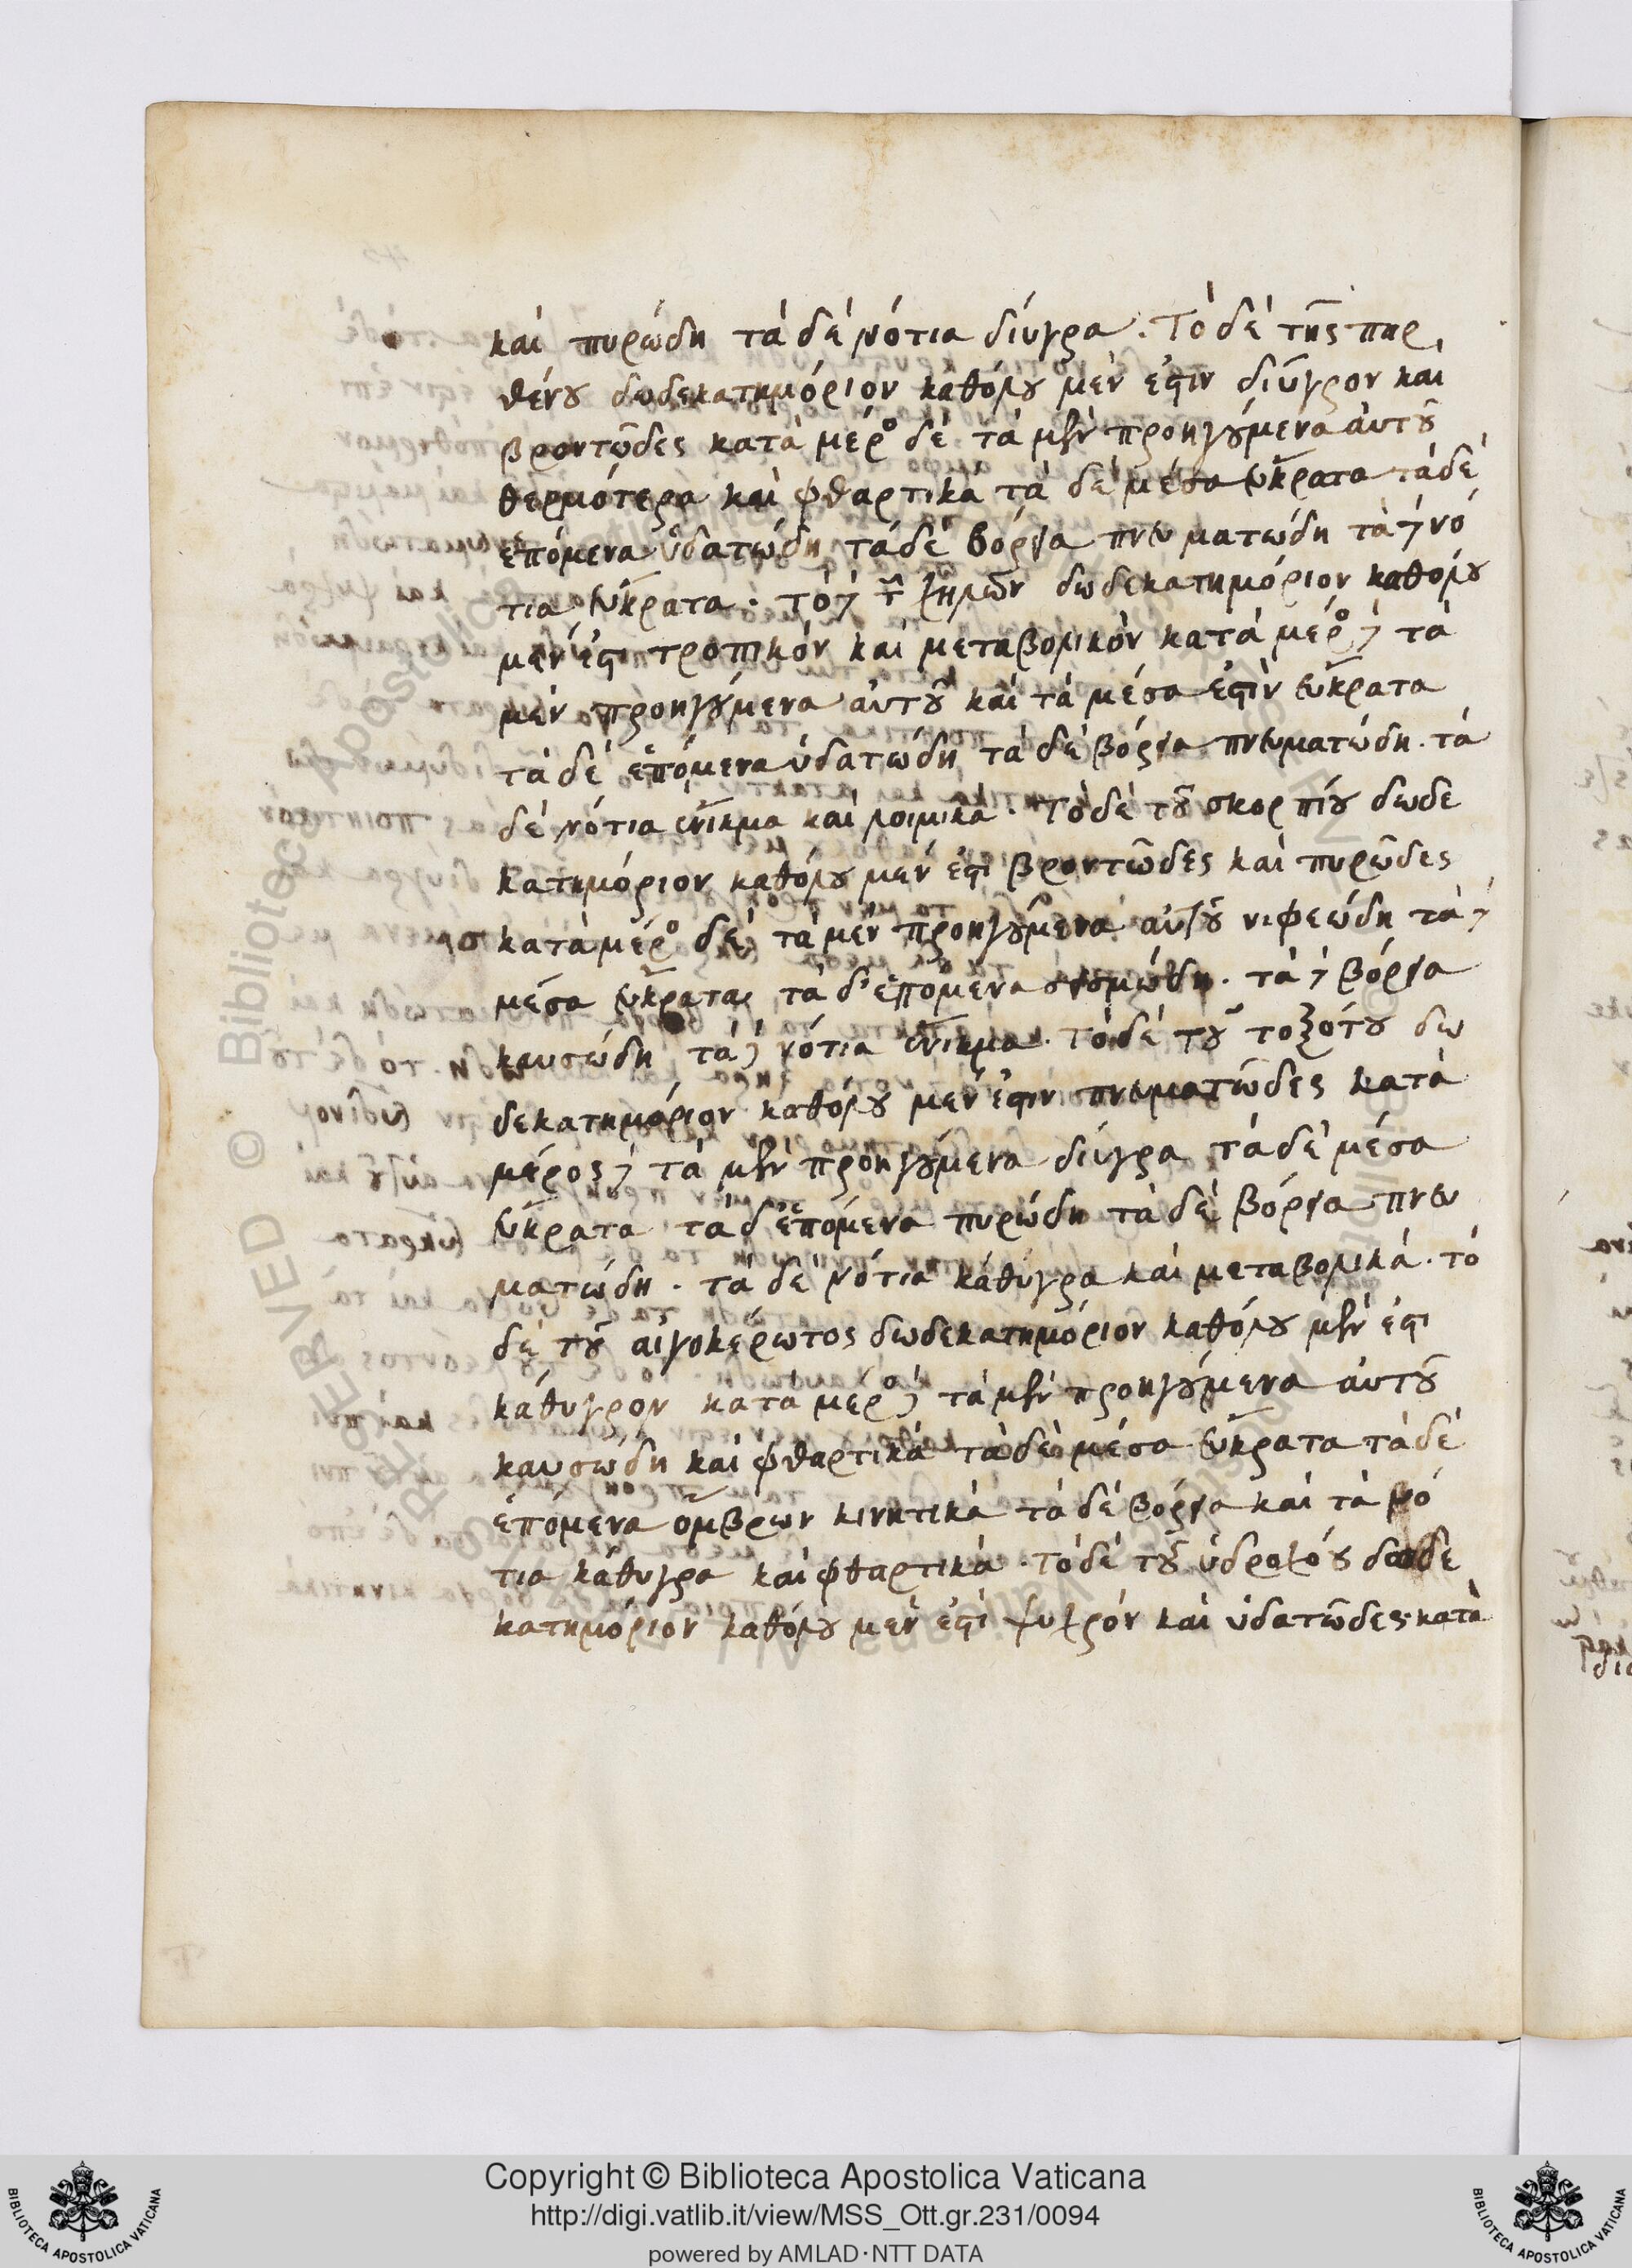 καὶ πυρώδη τὰ δὲ νότια δίυγρα. Τὸ δὲ τῆς παρ
θένου δωδεκατημόριον καθόλου μέν ἐστιν δίυγρον καὶ
βροντῶδες κατὰ μέρο δὲ τὰ μὲν προηγούμενα αὐτοῦ
θερμότερα καὶ φθαρτικὰ τὰ δὲ μέσα εὔκρατα τὰ δὲ
ἑπόμενα ὑδατώδη τὰ δὲ βόρεια πνευματώδη τὰ δὲ νό
τια εὔκρατα. τὸ δὲ τῶν ζηλῶν δωδεκατημόριον καθόλου
μέν ἐστι τροπικὸν καὶ μεταβολικὸν κατὰ μέρο δὲ τὰ
μὲν προηγούμενα αὐτοῦ καὶ τὰ μέσα ἐστὶν εὔκρατα
τὰ δὲ ἑπόμενα ὑδατώδη τὰ δὲ βόρεια πνευματώδη. τὰ
δὲ νότια ἔνικμα καὶ λοιμικά. Τὸ δὲ τοῦ σκορπίου δωδε
κατημόριον καθόλου μέν ἐστι βροντῶδες καὶ πυρῶδες
κατὰ μέρο δὲ τὰ μὲν προηγούμενα αὐτοῦ νιφεώδη τὰ δὲ
μέσα εὔκρατα τὰ δ' ἑπόμενα σεισμώδη. τὰ δὲ βόρεια
καυσώδη τὰ δὲ νότια ἔνικμα. Τὸ δὲ τοῦ τοξότου δω
δεκατημόριον καθόλου μέν ἐστιν πνευματῶδες κατὰ
μέρος δὲ τὰ μὲν προηγούμενα δίυγρα τὰ δὲ μέσα
εὔκρατα τὰ δ' ἑπόμενα πυρώδη τὰ δὲ βόρεια πνευ
ματώδη. τὰ δὲ νότια κάθυγρα καὶ μεταβολικά. τὸ
δὲ τοῦ αἰγοκέρωτος δωδεκατημόριον καθόλου μέν ἐστι
κάθυγρον κατὰ μέρο δὲ τὰ μὲν προηγούμενα αὐτοῦ
καυσώδη καὶ φθαρτικὰ τὰ δὲ μέσα εὔκρατα τὰ δὲ
ἑπόμενα ὄμβρων κινητικὰ τὰ δὲ βόρεια καὶ τὰ νό
τια κάθυγρα καὶ φθαρτικά. Τὸ δὲ τοῦ ὑδροχόου δωδε
κατημόριον καθόλου μέν ἐστὶ ψυχρὸν καὶ ὑδατῶδες. κατὰ
Copyright © Biblioteca Apostolica Vaticana
http://digi.vatlib.it/view/MSS_Ott.gr.231/0094
powered by AMLAD·NTT DATA
BIBLIOTECA APOSTOLICA VATICANA
BIBLIOTECA APOSTOLICA VATICANA